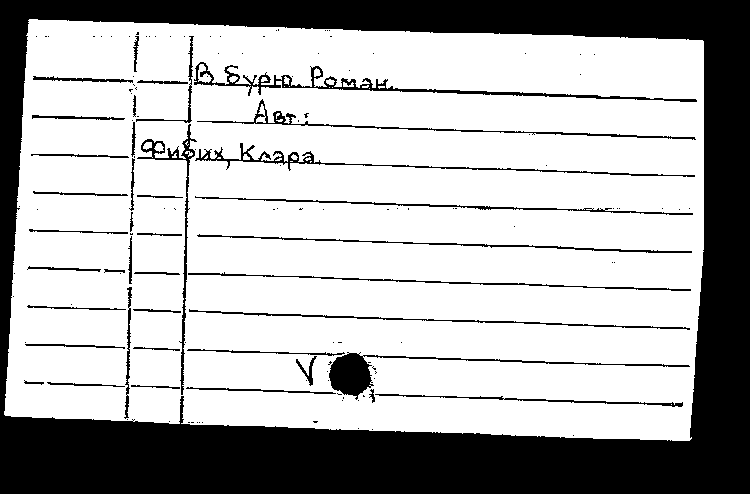 В бурю. Роман.
Авт.:
Фибих, Клара.
V